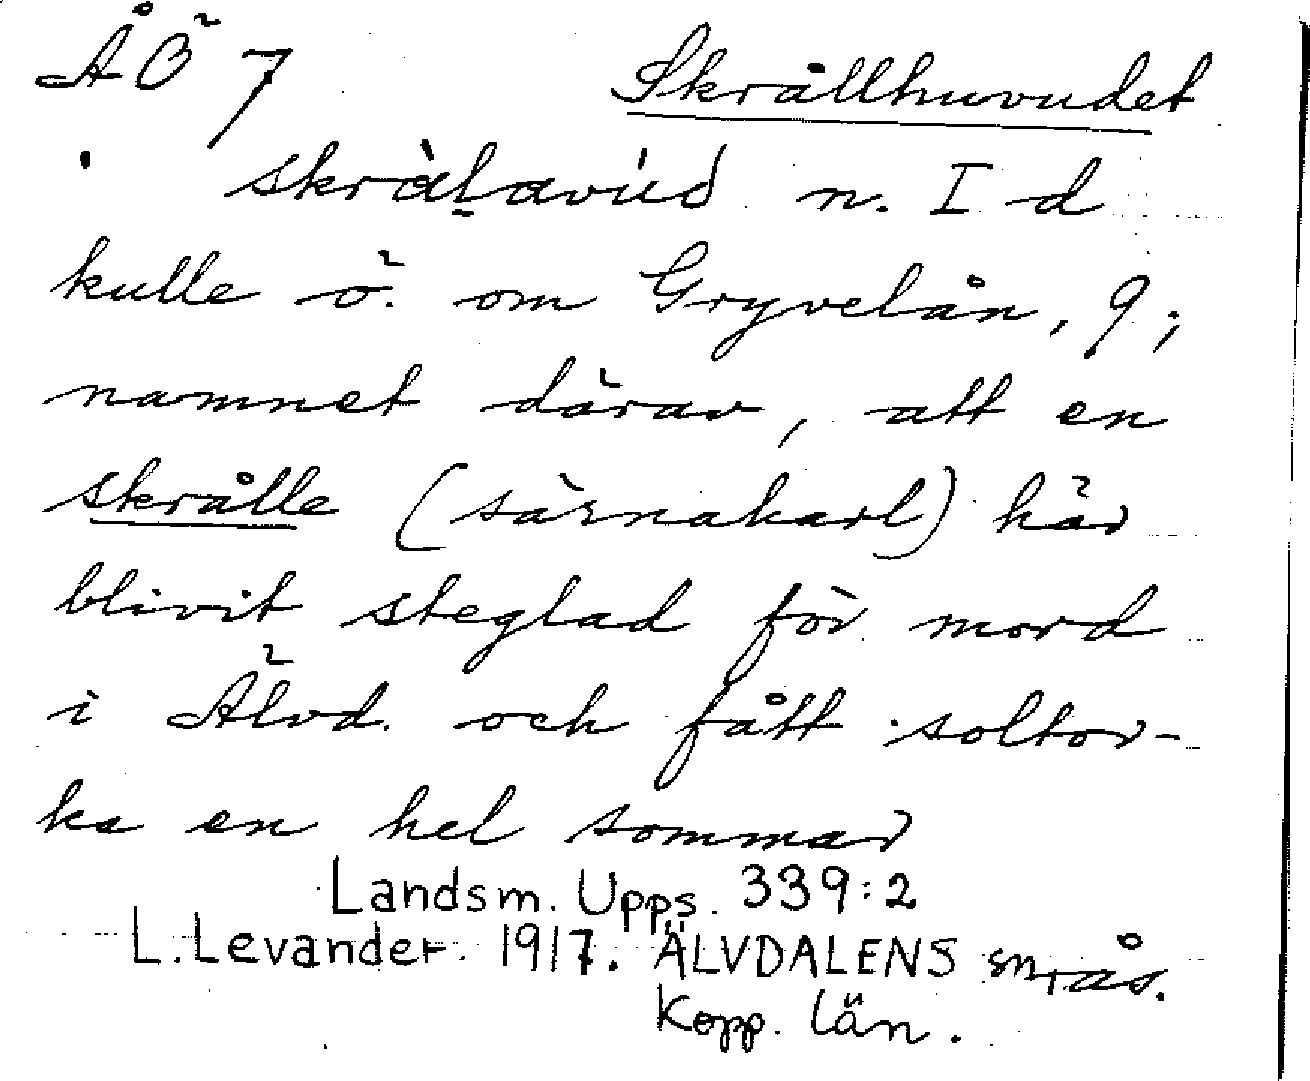 ÅÖ 7 Skrållhuvudet
skràl̠avúd n. I d
kulle ö. om Gryvelån, 9;
namnet därav, att en
skrålle (särnakarl) här
blivit steglad för mord
i Älvd. och fått soltor-
ka en hel sommar
Landsm. Upps. 339:2
L. Levander. 1917. ÄLVDALENS sn, ås.
Kopp. län.